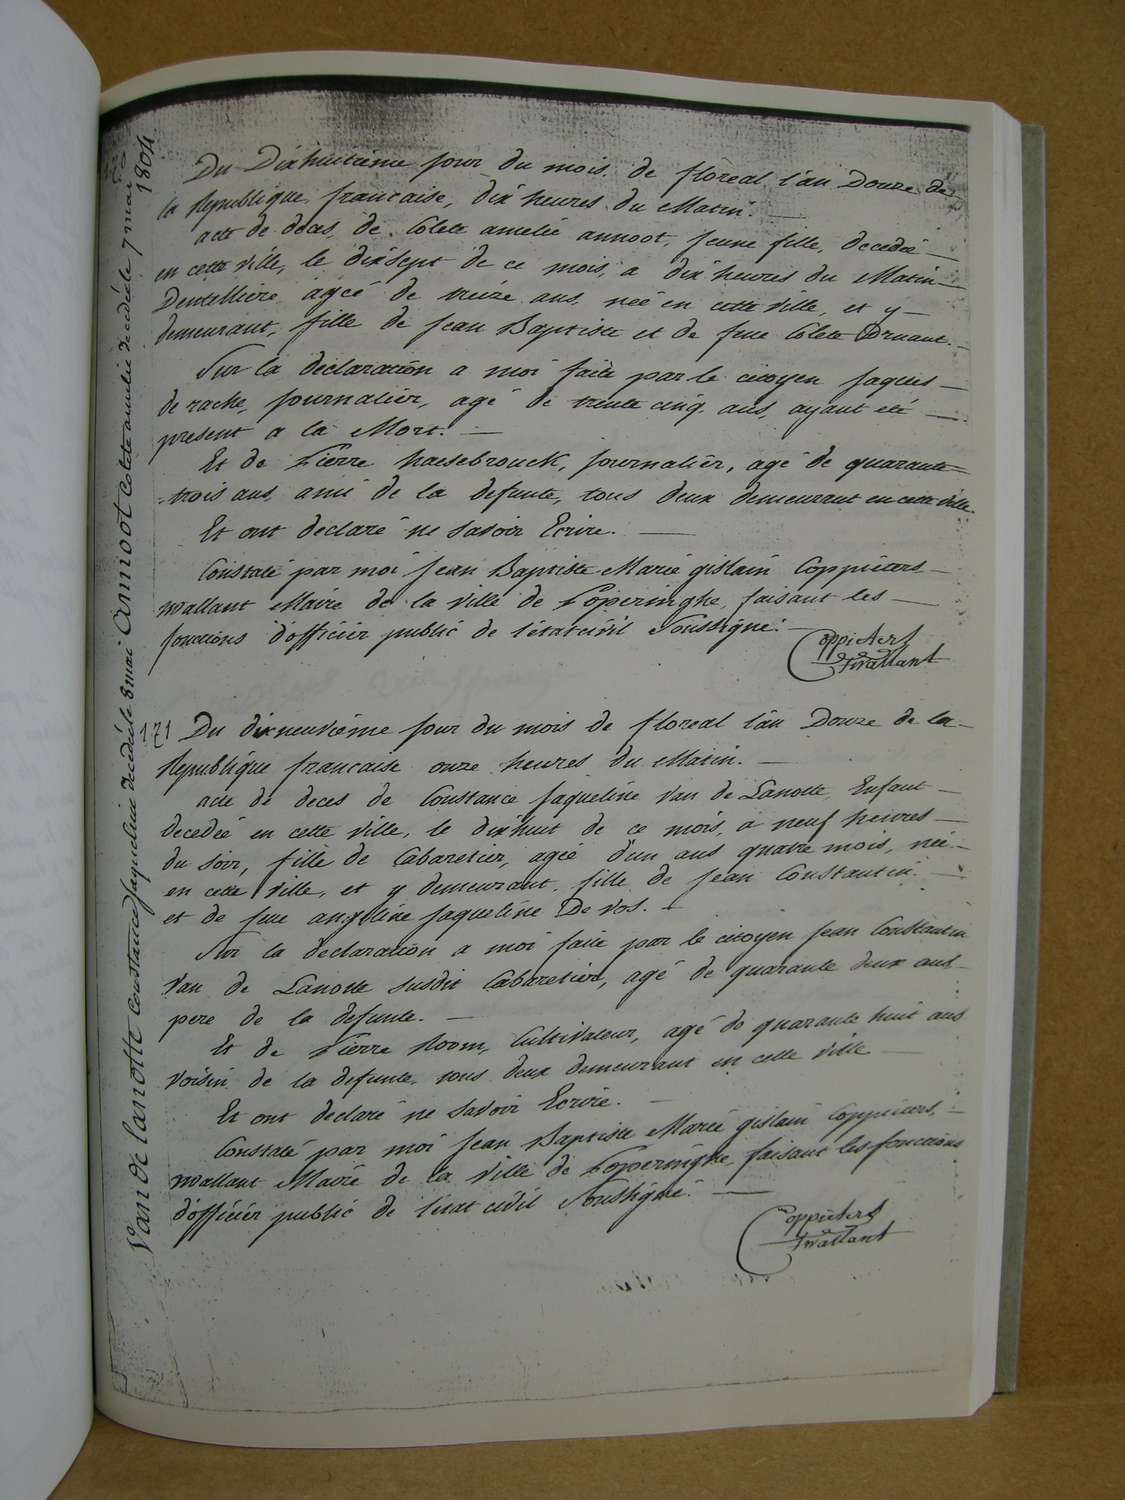 Du Dixhuitième jour du mois de floreal l'an Douze de
la Republique francaise, dix heures du Matin.
acte de deces de Colete amelie annoot, jeune fille, decedeé
en cette ville, le dixsept de ce mois, a dix heures du Matin
Dentellière ageé de treize ans, neé en cette ville, et y
demeurant, fille de Jean Baptiste et de feue Colete Druant.
Sur la declaration a moi faite par le citoyen Jaques
de rache, journalier, agé de trente cinq ans, ayant eté
present a la Mort.
Et de Pierre haesebrouck, journalier, agé de quarante
trois ans, ami de la defunte, tous deux demeurant en cette ville.
Et ont declaré ne savoir Ecrire.
Constaté par moi Jean Baptiste Marie gislain Coppieters
wallant Maire de la ville de Poperinghe, faisant les
fonctions d'officier public de l'etat civil Soussigné.
Coppieters
Twallant
171 Du dixneuvième jour du mois de floreal l'an Douze de la
Republique francaise onze heures du Matin.
acte de deces de Constance Jaqueline Van de Lanotte, Enfant
decedeé en cette ville, le dixhuit de ce mois, a neuf heures
du soir, fille de Cabaretier, ageé d'un ans quatre mois, neé
en cette ville, et y demeurant, fille de Jean Constantin
et de feue angeline Jaqueline De vos.
Sur la declaration a moi faite par le citoyen Jean Constantin
Van de Lanotte susdit Cabaretier, agé de quarante deux ans
pere de la defunte.
Et de Pierre Room, Cultivateur, agé de quarante huit ans
voisin de la defunte, tous deux demeurant en cette ville
Et ont declaré ne savoir Ecrire.
Constaté par moi Jean Baptiste Marie gislain Coppieters,
wallant Maire de la ville de Poperinghe, faisant les fonctions
d'officier public de l'etat civil Soussigné.
Coppieters
Twallant
Van de lanotte Constance Jaqueline decedée le 8 mai Annoot Colete amelie decedée le 7 mai
1804